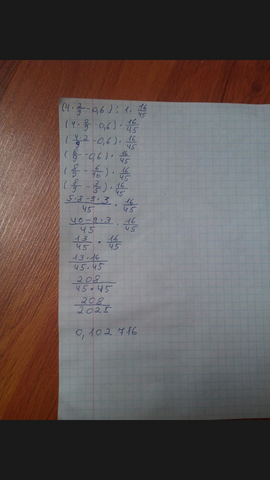 (4·2/9-0,6):1·16/45
(4·2/9-0,6)·16/45
(4·2/9-0,6)·16/45
(8/9-0,6)·16/45
(8/9-6/10)·16/45
(8/9-3/5)·16/45
5·8-9·3/45·16/45
40-9·3/45·16/45
13/45·16/45
13·16/45·45
208/45·45
208/2025
0,102716